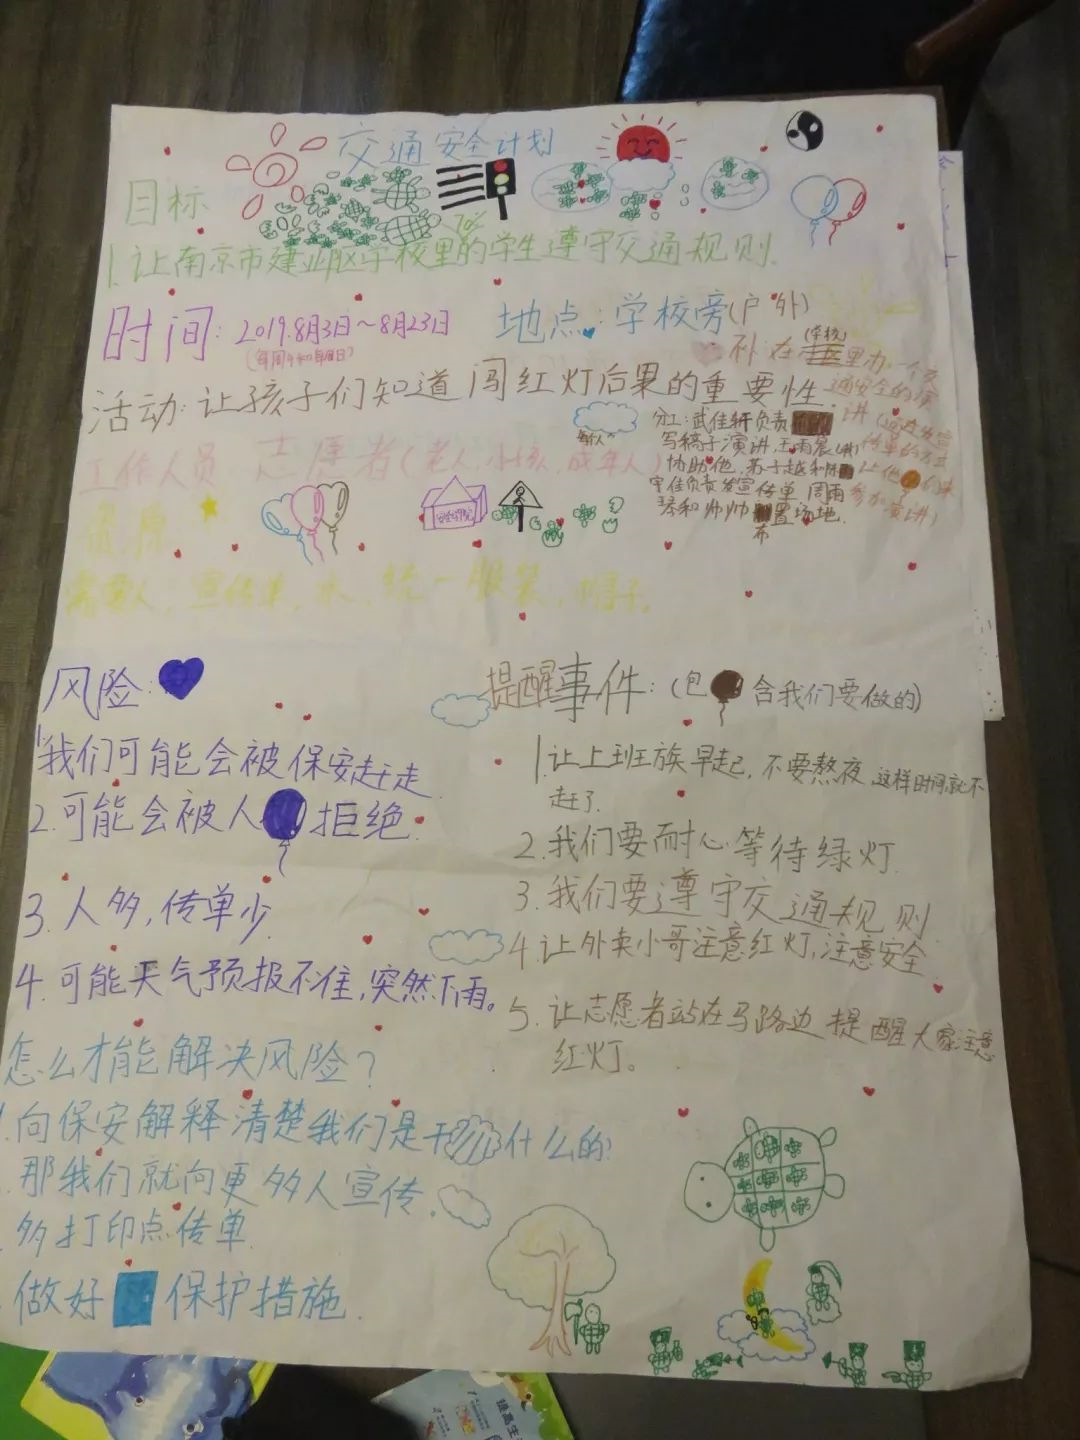 交通安全计划
目标
70%
1.让南京市建邺区学校里的学生遵守交通规则.
时间:2019.8月3日～8月23日
地点:学校旁(户外)
(学校)
补:在里办一个交
通安全的演
讲(通过发宣
传单的方式
让他们来
参加演讲)
活动:让孩子们知道闯红灯后果的重要性.
分工:武佳轩负责
写稿子演讲,王雨晨
协助他,苏子越和
宇佳负责发宣传单,周雨
琴和帅帅布置场地.
工作人员 志愿者(老人,小孩,成年人)
资源
需要人,宣传单,水,统一服装,帽子。
风险:
1我们可能会被保安赶走
2.可能会被人拒绝.
3.人多,传单少.
4.可能天气预报不准,突然下雨。
提醒事件:(包含我们要做的)
1.让上班族早起,不要熬夜,这样时间就不
赶了.
2.我们要耐心等待绿灯
3.我们要遵守交通规则
4让外卖小哥注意红灯,注意安全
5.让志愿者站在马路边提醒大家注意
红灯。
怎么才能解决风险?
1.向保安解释清楚我们是干什么的!
那我们就向更多人宣传.
多打印点传单
做好保护措施.